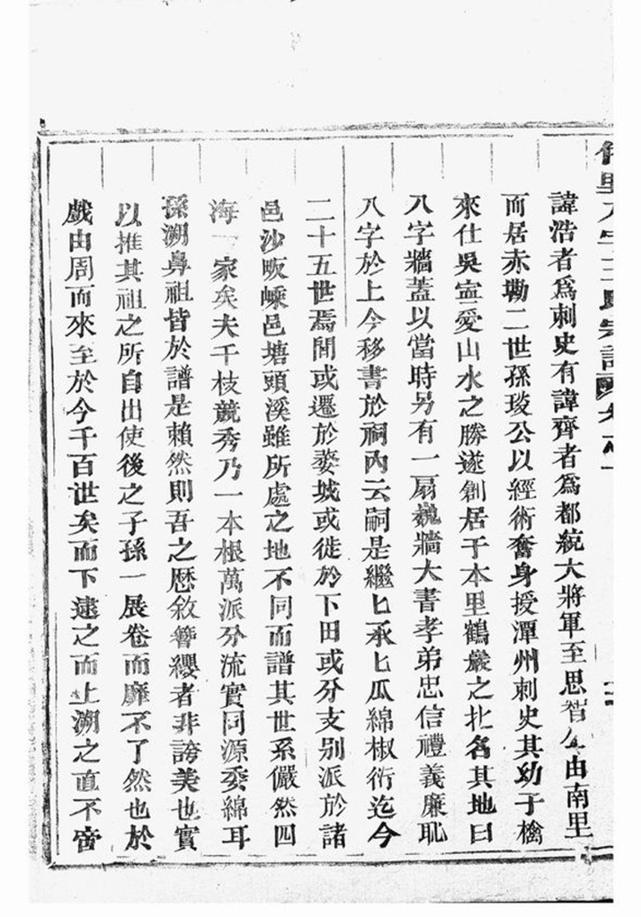 諱浩者爲刺史有諱齊者爲都統大將軍至思智公由南里
而居赤勘二世孫琰公以經術奮身授潭州刺史其幼子檎
來仕吳寍愛山水之勝遂創居于本里鶴巖之北名其地曰
八字牆蓋以當時另有一扇巍牆大書孝弟忠信禮義廉恥
八字於上今移書於祠內云嗣是繼匕承匕瓜綿椒衍迄今
二十五世焉閒或遷於婺城或徙於下田或分支别派於諸
邑沙畈嵊邑塘頭溪雖所處之地不同而譜其世系儼然四
海一家矣夫千枝競秀乃一本根萬派分流實同源委綿耳
孫溯鼻祖皆於譜是賴然則吾之歷敘簪纓者非誇美也實
以推其祖之所自出使後之子孫一展卷而靡不了然也於
戲由周而來至於今千百世矣而下逮之而上溯之直不啻